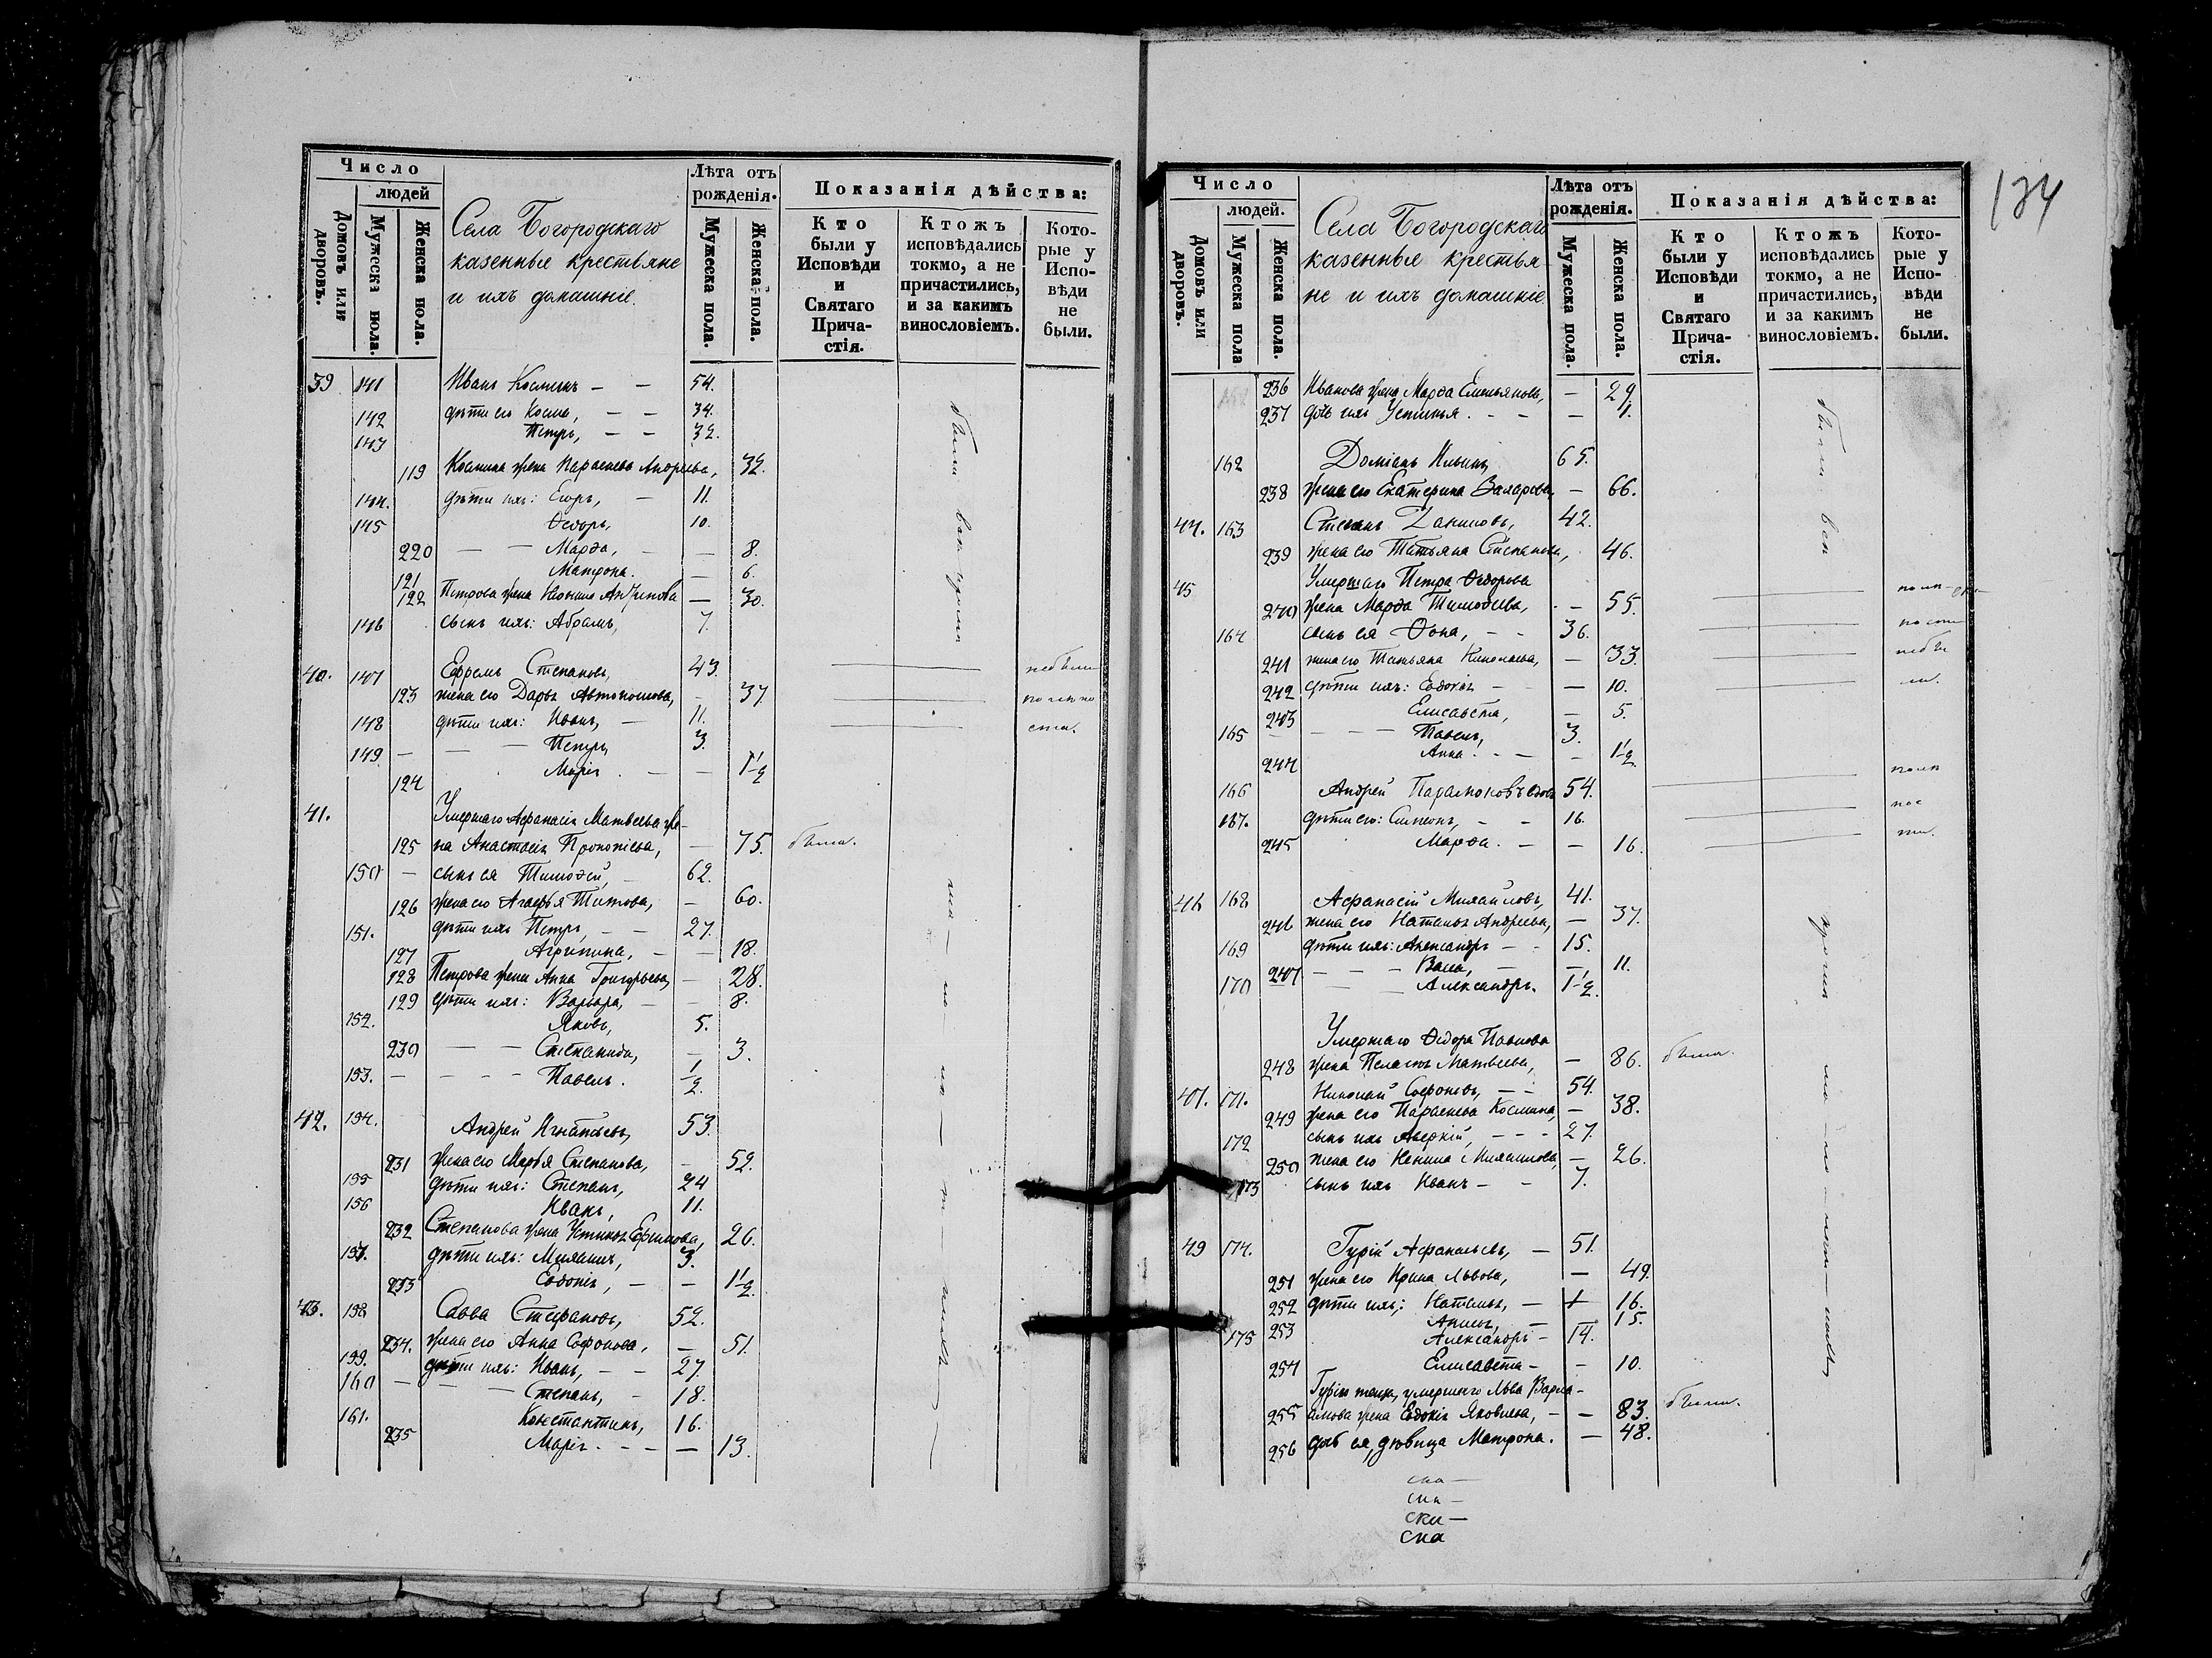 Число
людей
Домовъ или дворовъ.
Мужеска пола.
Женска пола.
Села Богородскаго
казенные крестьяне
и ихъ домашніе.
Лѣта отъ
рожденія.
Мужеска пола.
Женска пола.
Показанія дѣйства:
Кто
были у
Исповѣди
и
Святаго
Прича-
стія.
Ктожъ
исповѣдались
токмо, а не
причастились,
и за какимъ
винословіемъ.
Кото-
рые у
Испо-
вѣди
не
были.
39 141 Иванъ Косминъ – – 54.
142 дѣти его Косма, – – 34.
143 Петръ, – – 32.
119 Космина жена Параскева Андреева, 32.
144. дѣти ихъ: Егоръ, – 11.
145 Ѳедоръ, 10.
220 – – Марѳа, – – 8.
121 Матрона. – 6.
122 Петрова жена – 30.
146 сынъ ихъ: Абрамъ, 7.
40. 147 Ефремъ Степановъ, 43. небыли
123 жена его Дарья Автономова, – 37.
148 дѣти ихъ: Иванъ, – 11.
149 – – – Петръ, 3.
124 Марія. – – 1½
41. Умершаго Афанасія Матвѣева же-
125 на Анастасія Прокопіева, – 75. была.
150 – сынъ ея Тимоѳей, – 62.
126 жена его Агафья Титова, – 60.
151. дѣти ихъ Петръ, – – 27.
127 Агрипина, – – 18.
128 Петрова жена Анна Григорьева, – 28.
129 дѣти ихъ: Варвара, – – 8.
152. Яковъ, 5.
230 – – Степанида, – 3.
153. – – – – Павелъ. ½
42. 154. Андрей Игнатьевъ, 53.
231 жена его Марья Степанова, – 52.
155 дѣти ихъ: Степанъ, 24
156 Иванъ, 11.
232 Степанова жена Устинья Ефимова, 26.
157. дѣти ихъ: Михаилъ, 3.
233 Евдокія, – – 1½
43. 158 Савва Стефановъ, 52.
234. жена его Анна Софонова, – 51.
159. дѣти ихъ: Иванъ, – – 27.
160 – – – Степанъ, – 18.
161. Константинъ, 16.
235 Марія. – – – 13.
были
134
Число
людей.
Домовъ или дворовъ.
Мужеска пола
Женска пола.
Села Богородскаго
казенные крестья-
не и ихъ домашніе.
Лѣта отъ
рожденія.
Мужеска пола.
Женска пола.
Показанія дѣйства:
Кто
были у
Исповѣди
и
Святаго
Прича-
стія.
Ктожъ
исповѣдались
токмо, а не
причастились,
и за какимъ
винословіемъ.
Кото-
рые у
Испо-
вѣди
не
были.
236 Иванова жена Марѳа Емельянова, – 29.
237 дочь ихъ Устинья. – – – 1.
162 Доміанъ Ильинъ, 65.
238 жена его Екатерина – 66.
44. 163 Степанъ Даниловъ, 42.
239 жена его Татьяна Степанова, 46.
45 Умершаго Петра Ѳедорова
240 жена Марѳа Тимоѳеева, – 55.
164 сынъ ея Ѳома, – – 36.
241 жена его Татьяна Николаева, – 33.
242 дѣти ихъ: Евдокія – – 10.
243 Елисавета, – 5.
165 – – – Павелъ, 3.
244 Анна. – – – 1½
166 Андрей Парамоновъ вдовъ 54.
167. дѣти его: Симеонъ, – – 16.
245 Марѳа. – – 16.
46 168 Афанасій Михайловъ, 41.
246 жена его Наталья Андреева, – 37.
169 дѣти ихъ: Александръ – – 15.
247 – – – Васса, – – 11.
170 – – Александръ. 1½
Умершаго Ѳедора Павлова
248 жена Пелагія Матвѣева, – 86. была.
47. 171. Николай Софоновъ, – – 54.
249 жена его Параскева Космина, – 38.
172 сынъ ихъ Аверкій, – – – 27.
250 жена его Ксенія Михайлова, – 26.
173 сынъ ихъ Иванъ – – 7.
49 174. Гурій Афанасьевъ, – 51.
251 жена его Ирина Львова, – 49.
252 дѣти ихъ: Наталья, – 16.
253 – 15.
175 Александръ – 14.
254 Елисавета – – 10.
Гурія теща, умершаго Льва Варла-
255 амова жена Евдокія Яковлева, – – 83. была.
256 дочь ея, дѣвица Матрона. – 48.
были